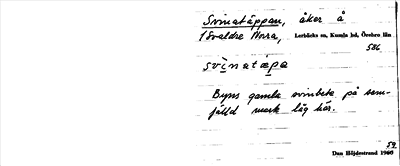 Svinatäppan, åker å
1 Svaldre Norra, Lerbäcks sn, Kumla hd, Örebro län
586
svìnatépa
Byns gamla svinbete på sam-
fälld mark låg här.
59
Dan Höjdestrand 1960